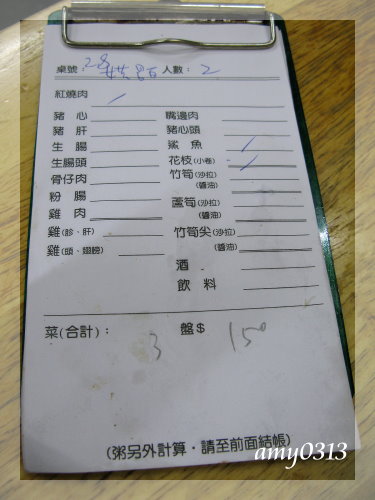 桌號：28 人數：2
紅燒肉 /
豬心 嘴邊肉
豬肝 豬心頭
生腸 鯊魚 /
生腸頭 花枝(小卷) /
骨仔肉 竹筍(沙拉)
(醬油)
粉腸 蘆筍(沙拉)
(醬油)
雞肉
雞(胗、肝) 竹筍尖(沙拉)
(醬油)
雞(頭、翅膀)
酒
飲料
菜(合計)： 3 盤$ 150
(粥另外計算・請至前面結帳)
amy0313